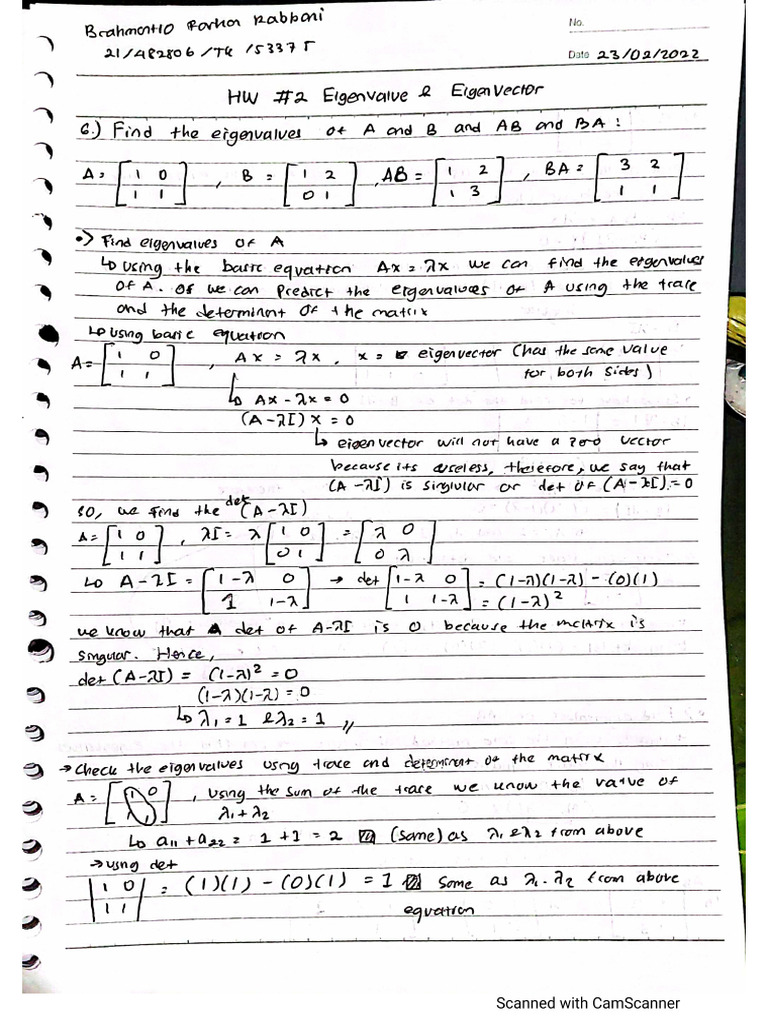 Brahmantio
21/482806/TK/53375
No.
Date 23/02/2022
HW #2 Eigenvalue & EigenVector
6.) Find the eigenvalues of A and B and AB and BA :
A = [1 0; 1 1], B = [1 2; 0 1], AB = [1 2; 1 3], BA = [3 2; 1 1]
•> Find eigenvalues of A
↳ Using the basic equation Ax = λx we can find the eigenvalues
of A. Or we can predict the eigenvalues of A using the trace
and the determinant of the matrix
↳ Using basic equation
A = [1 0; 1 1], Ax = λx, x = eigenvector (has the same value
for both sides)
↳ Ax - λx = 0
(A - λI) x = 0
↳ eigenvector will not have a zero vector
because its useless, therefore, we say that
(A - λI) is singular or det of (A - λI) = 0
So, we find the det (A - λI)
A = [1 0; 1 1], λI = λ [1 0; 0 1] = [λ 0; 0 λ]
↳ A - λI = [1-λ 0; 1 1-λ] → det [1-λ 0; 1 1-λ] = (1-λ)(1-λ) - (0)(1)
= (1-λ)²
we know that det of A-λI is 0 because the matrix is
singular. Hence,
det (A-λI) = (1-λ)² = 0
(1-λ)(1-λ) = 0
↳ λ₁ = 1 & λ₂ = 1 //
→ Check the eigenvalues using trace and determinant of the matrix
A = [1 0; 1 1], using the sum of the trace we know the value of
λ₁ + λ₂
↳ a₁₁ + a₂₂ = 1 + 1 = 2 (same) as λ₁ & λ₂ from above
→ using det
|1 0; 1 1| = (1)(1) - (0)(1) = 1 same as λ₁ . λ₂ from above
equation
Scanned with CamScanner